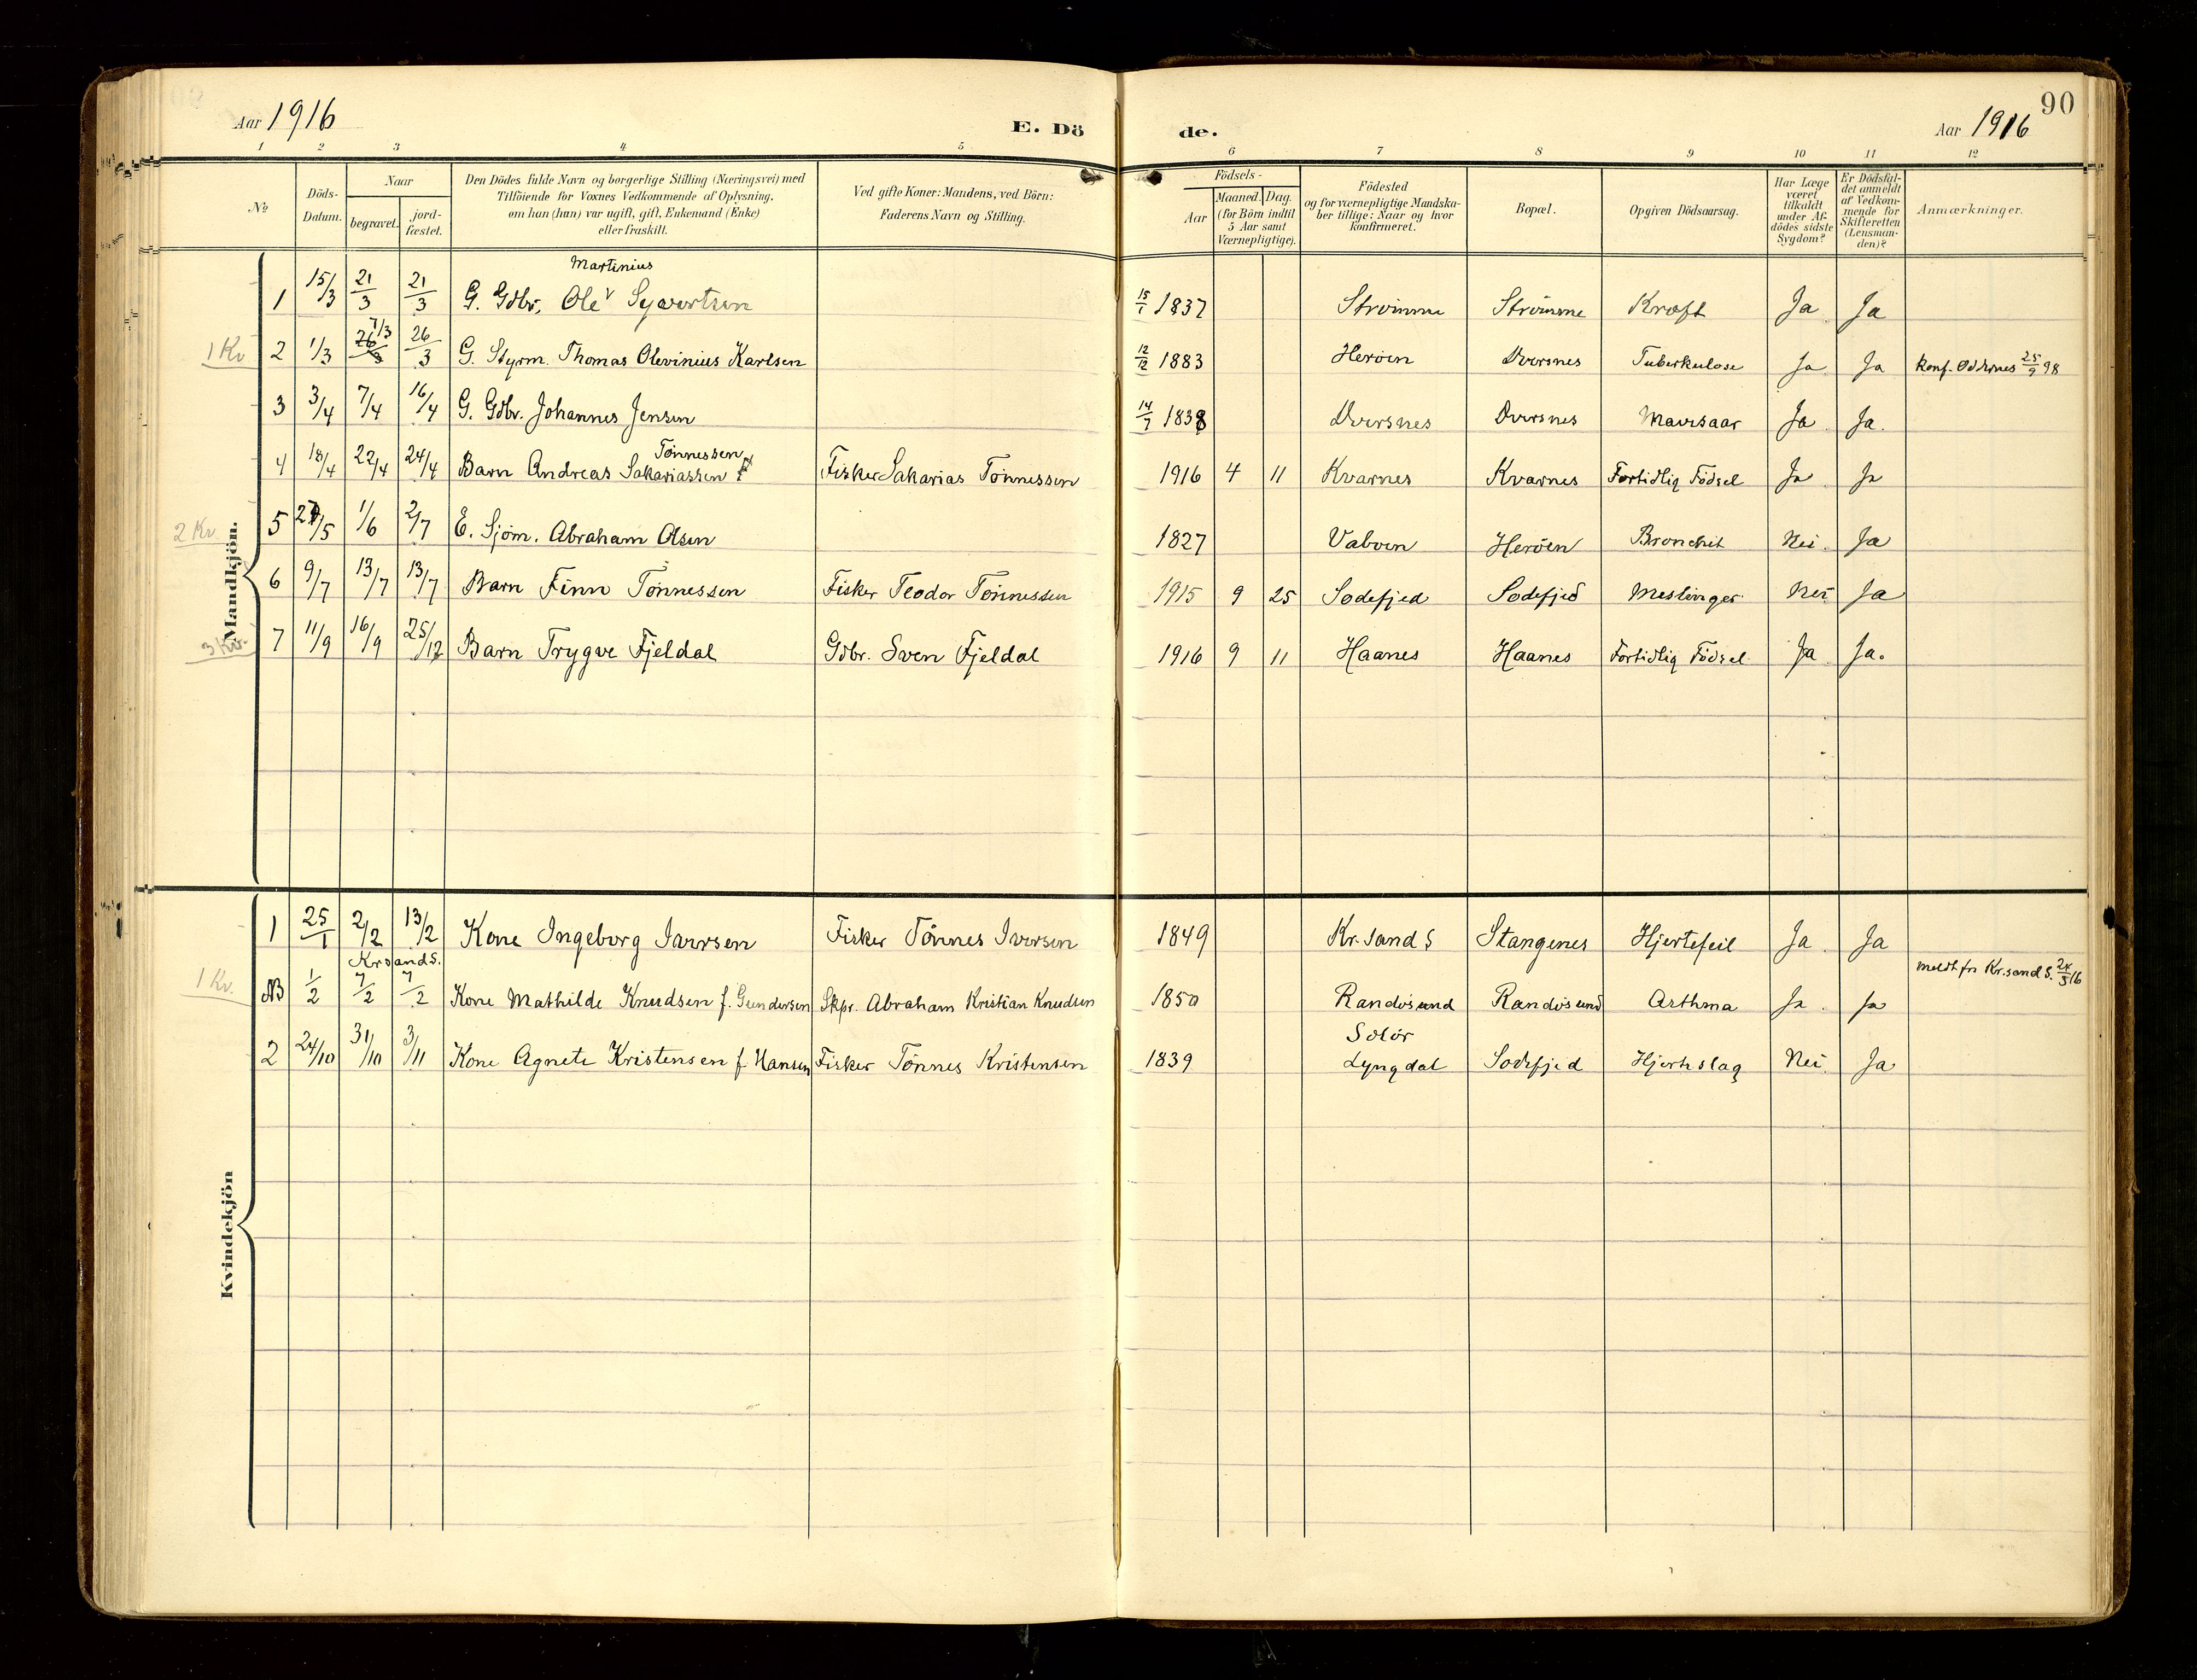 90
Aar 1916 E. Dö de. Aar 1916
1 2 3 4 5 6 7 8 9 10 11 12
No
Döds-Datum.
Naar
begravet.
jord-fæstet.
Den Dödes fulde Navn og borgerlige Stilling (Næringsvei) med
Tilföiende for Voxnes Vedkommende af Oplysning,
om han (hun) var ugift, gift, Enkemand (Enke)
eller fraskilt.
Ved gifte Koner: Mandens, ved Börn:
Faderens Navn og Stilling.
Födsels-
Aar
Maaned. Dag.
(for Börn indtil
5 Aar samt
Værnepligtige).
Födested
og for værnepligtige Mandska-
ber tillige: Naar og hvor
konfirmeret.
Bopæl.
Opgiven Dödsaarsag.
Har Læge
været
tilkaldt
under Af-
dödes sidste
Sygdom?
Er Dödsfal-
det anmeldt
af Vedkom-
mende for
Skifteretten
(Lensman-
den)?
Anmærkninger.
Mandkjön.
Martinius
1 15/3 21/3 21/3 G. Gdbr. Ole Syvertsen 15/1 1837 Strømme Strømme Kræft Ja Ja
1 Kv 2 1/3 26/3 7/3 26/3 G. Styrm. Thomas Olevinius Karlsen 12/12 1883 Herøen Dversnes Tuberkulose Ja Ja Konf. Oddernes 25/9 98
3 3/4 7/4 16/4 G. Gdbr. Johannes Jensen 14/7 1838 Dversnes Dversnes Mavesaar Ja Ja.
Tønnessen
4 18/4 22/4 24/4 Barn Andreas Sakariassen Fisker Sakarias Tønnessen 1916 4 11 Kvarnes Kvarnes Fortidlig Födsel Ja Ja
2 Kv. 5 27/5 1/6 2/7 E. Sjøm. Abraham Olsen 1827 Vaboen Herøen Bronchit Nei Ja
6 9/7 13/7 13/7 Barn Finn Tønnessen Fisker Teodor Tønnessen 1915 9 25 Sodefjed Sodefjed Meslinger Nei Ja
3 Kv. 7 11/9 16/9 25/12 Barn Trygve Fjeldal Gdbr. Sven Fjeldal 1916 9 11 Haanes Haanes Fortidlig Födsel Ja Ja.
Kvindekjön
1 25/1 2/2 13/2 Kone Ingeborg Iversen Fisker Tønnes Iversen 1849 Kr.sand S Stangenes Hjertefeil Ja Ja
Krsand S. meldt fra Kr.sand S. 24/3 16
1 Kv. NB 1/2 7/2 7/2 Kone Mathilde Knudsen f. Gundersen Skpr. Abraham Kristian Knudsen 1850 Randøsund Randøsund Asthma Ja Ja
Solør
2 24/10 31/10 3/11 Kone Agnete Kristensen f. Hansen Fisker Tønnes Kristensen 1839 Lyngdal Sodefjed Hjerteslag Nei Ja